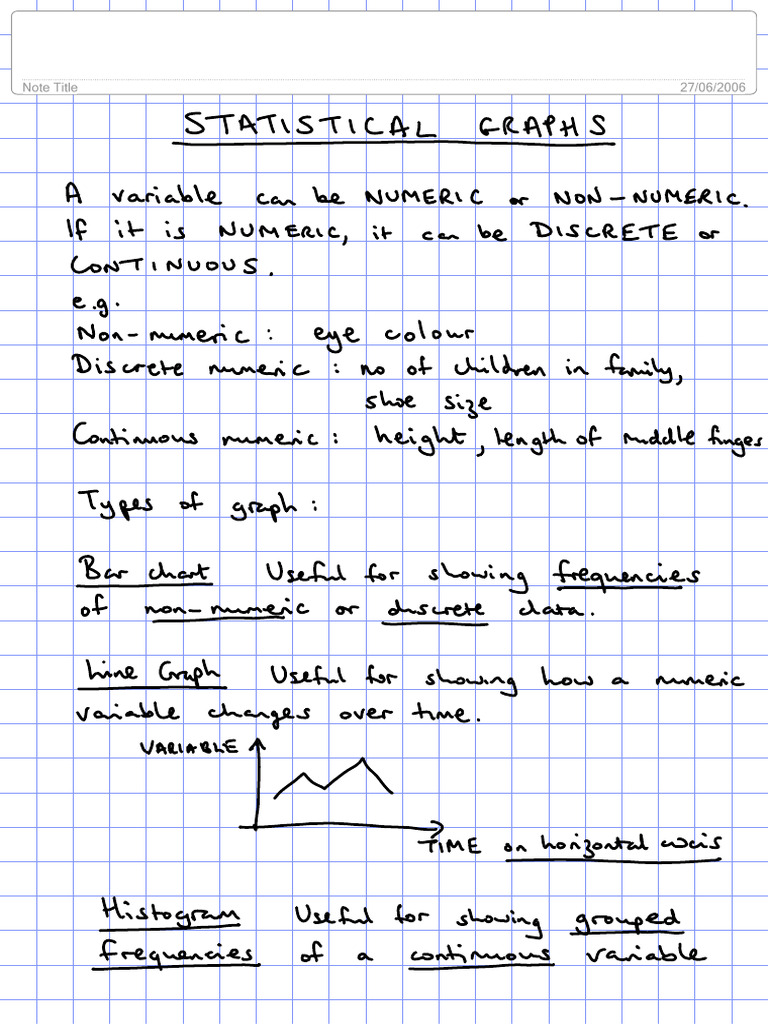 Note Title
27/06/2006
STATISTICAL GRAPHS
A variable can be NUMERIC or NON-NUMERIC.
If it is NUMERIC, it can be DISCRETE or
CONTINUOUS.
e.g.
Non-numeric: eye colour
Discrete numeric: no of children in family,
shoe size
Continuous numeric: height, length of middle finger
Types of graph:
Bar chart Useful for showing frequencies
of non-numeric or discrete data.
Line Graph Useful for showing how a numeric
variable changes over time.
VARIABLE
TIME on horizontal axis
Histogram Useful for showing grouped
frequencies of a continuous variable